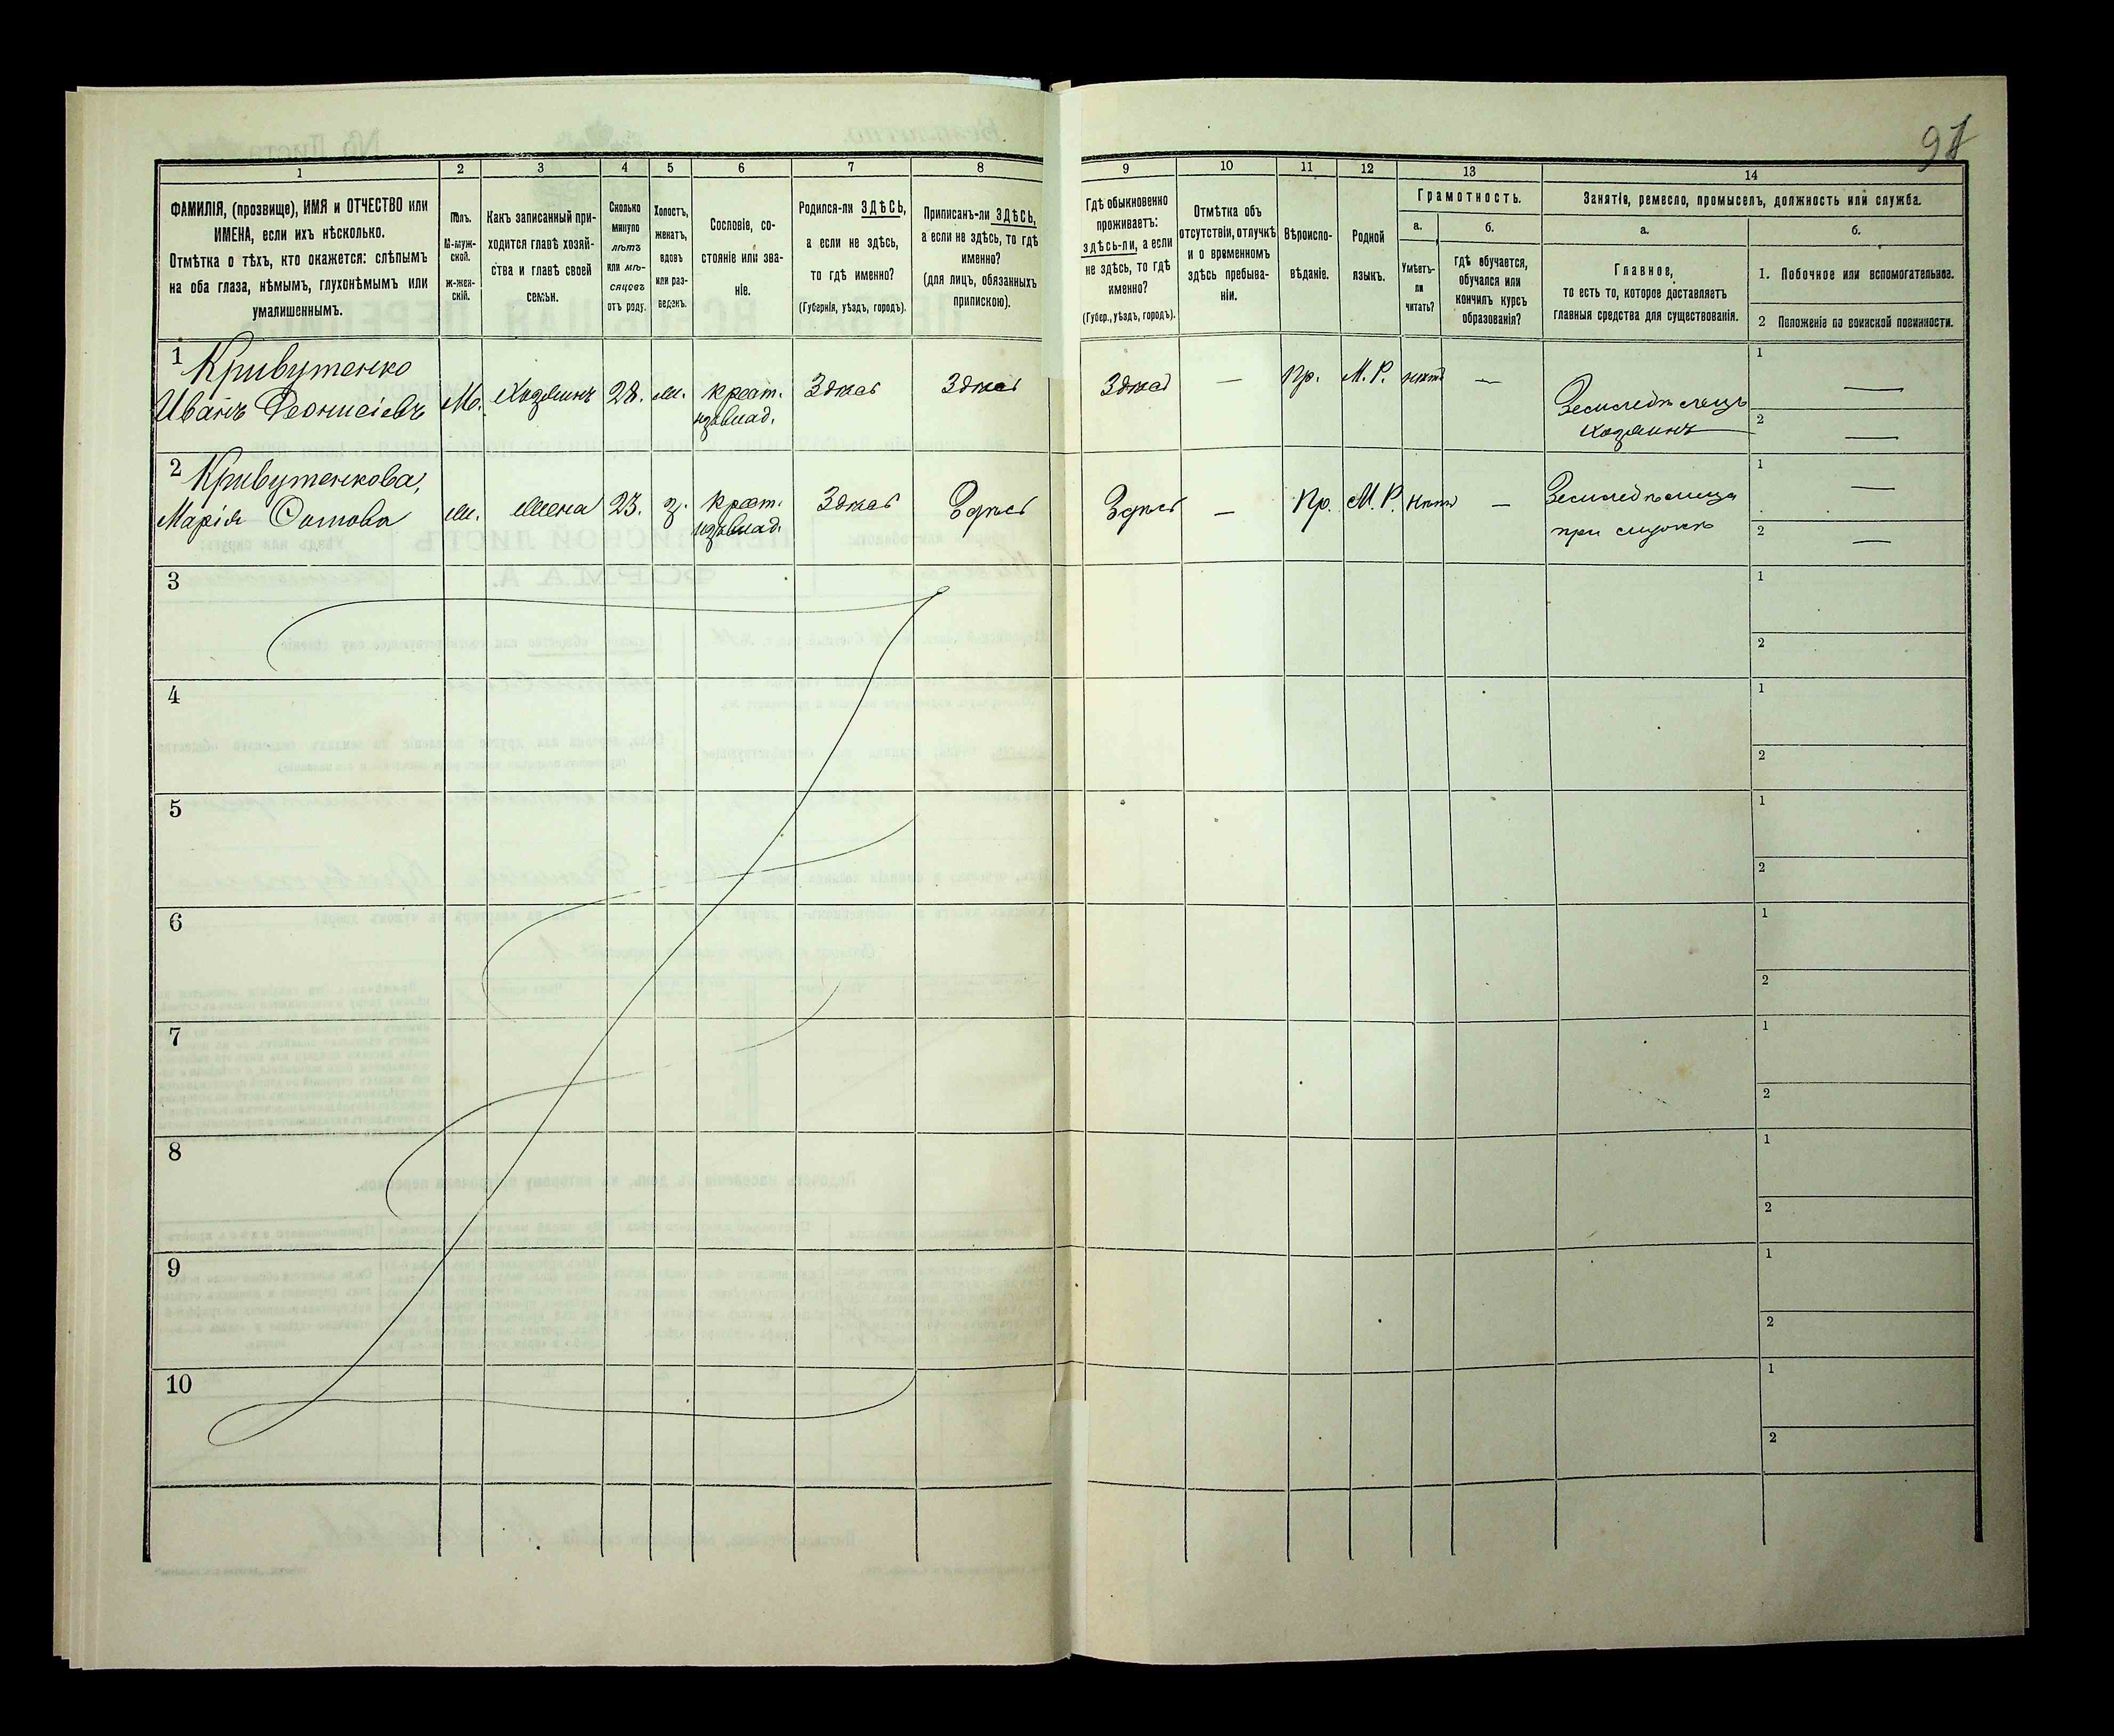 91
1 2 3 4 5 6 7 8 9 10 11 12 13 14
ФАМИЛІЯ, (прозвище), ИМЯ и ОТЧЕСТВО или
ИМЕНА, если ихъ нѣсколько.
Отмѣтка о тѣхъ, кто окажется: слѣпымъ
на оба глаза, нѣмымъ, глухонѣмымъ или
умалишеннымъ.
Полъ.
М-муж-
ской.
ж-жен-
скій.
Какъ записанный при-
ходится главѣ хозяй-
ства и главѣ своей
семьи.
Сколько
минуло
лѣтъ
или мѣ-
сяцевъ
отъ роду.
Холостъ,
женатъ,
вдовъ
или раз-
веденъ.
Сословіе, со-
стояніе или зва-
ніе.
Родился-ли ЗДѢСЬ,
а если не здѣсь,
то гдѣ именно?
(Губернія, уѣздъ, городъ).
Приписанъ-ли ЗДѢСЬ,
а если не здѣсь, то гдѣ
именно?
(для лицъ, обязанныхъ
припискою).
Гдѣ обыкновенно
проживаетъ:
здѣсь-ли, а если
не здѣсь, то гдѣ
именно?
(Губер., уѣздъ, городъ).
Отмѣтка объ
отсутствіи, отлучкѣ
и о временномъ
здѣсь пребыва-
ніи.
Вѣроиспо-
вѣданіе.
Родной
языкъ.
Грамотность.
а.
Умѣетъ-
ли
читать?
б.
Гдѣ обучается,
обучался или
кончилъ курсъ
образованія?
Занятіе, ремесло, промыселъ, должность или служба.
а.
Главное,
то есть то, которое доставляетъ
главныя средства для существованія.
б.
1. Побочное или вспомогательное.
2 Положеніе по воинской повинности.
1 Кривутенко
Иванъ Деонисіевъ М. Хозяинъ 28. ж. крест. Здѣсь Здѣсь Здѣсь — Пр. М. Р. нѣтъ — Земледѣлецъ 1 —
из влад. хозяинъ 2 —
2 Кривутенкова,
Марія ж. жена 23. з. крест. Здѣсь Здѣсь Здѣсь — Пр. М. Р. нѣтъ — Земледѣлица 1 —
из влад. при мужѣ 2 —
3 1
2
4 1
2
5 1
2
6 1
2
7 1
2
8 1
2
9 1
2
10 1
2